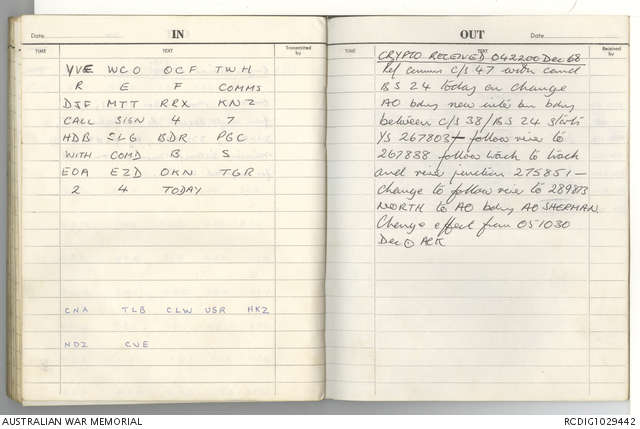 Date IN
TIME TEXT Transmitted by
YVE WCO OCF TWH
R E F COMMS
DJF MTT RRX KNZ
CALL SIGN 4 7
HDB SLG BDR PGC
WITH COMD B S
EOA EZD OKN TGR
2 4 TODAY
CNA TLB CLW USR HKZ
NDZ CWE
OUT Date
TIME TEXT Received by
CRYPTO RECEIVED 042200 Dec 68
Ref comms C/S 47 with comd
BS 24 today on change
AO bdry new inter bn bdry
between C/S 38/BS 24 starts
YS 267803 – follow river to
267838 follow track to track
and river junction 275851 –
Change to follow river to 289873
NORTH to AO bdry AO SHERMAN
Change effect from 051030
Dec ACK
AUSTRALIAN WAR MEMORIAL RCDIG1029442